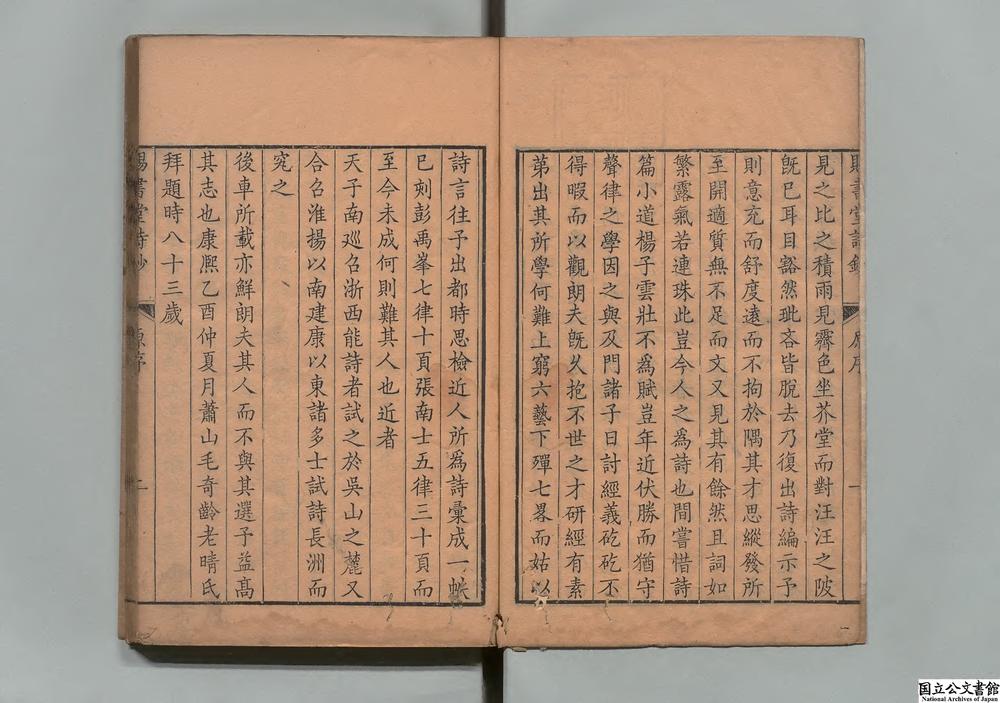 賜書堂詩鈔 原序 一
見之比之積雨見霽色坐芥堂而對汪汪之陂
旣已耳目豁然玼吝皆脫去乃復出詩編示予
則意充而舒度遠而不拘於隅其才思縱發所
至開適質無不足而文又見其有餘然且詞如
繁露氣若連珠此豈今人之爲詩也間嘗惜詩
篇小道楊子雲壯不爲賦豈年近伏勝而猶守
聲律之學因之與及門諸子日討經義矻矻不
得暇而以觀朗夫旣久抱不世之才研經有素
苐出其所學何難上窮六藝下殫七畧而姑以
詩言往予出都時思檢近人所爲詩彙成一帙
已刻彭禹峯七律十頁張南士五律三十頁而
至今未成何則難其人也近者
天子南廵召浙西能詩者試之於吳山之麓又
合召淮揚以南建康以東諸多士試詩長洲而
宛之
後車所載亦鮮朗夫其人而不與其選予益髙
其志也康熈乙酉仲夏月蕭山毛奇齡老晴氏
拜題時八十三歲
賜書堂詩鈔 原序 二
国立公文書館
National Archives of Japan